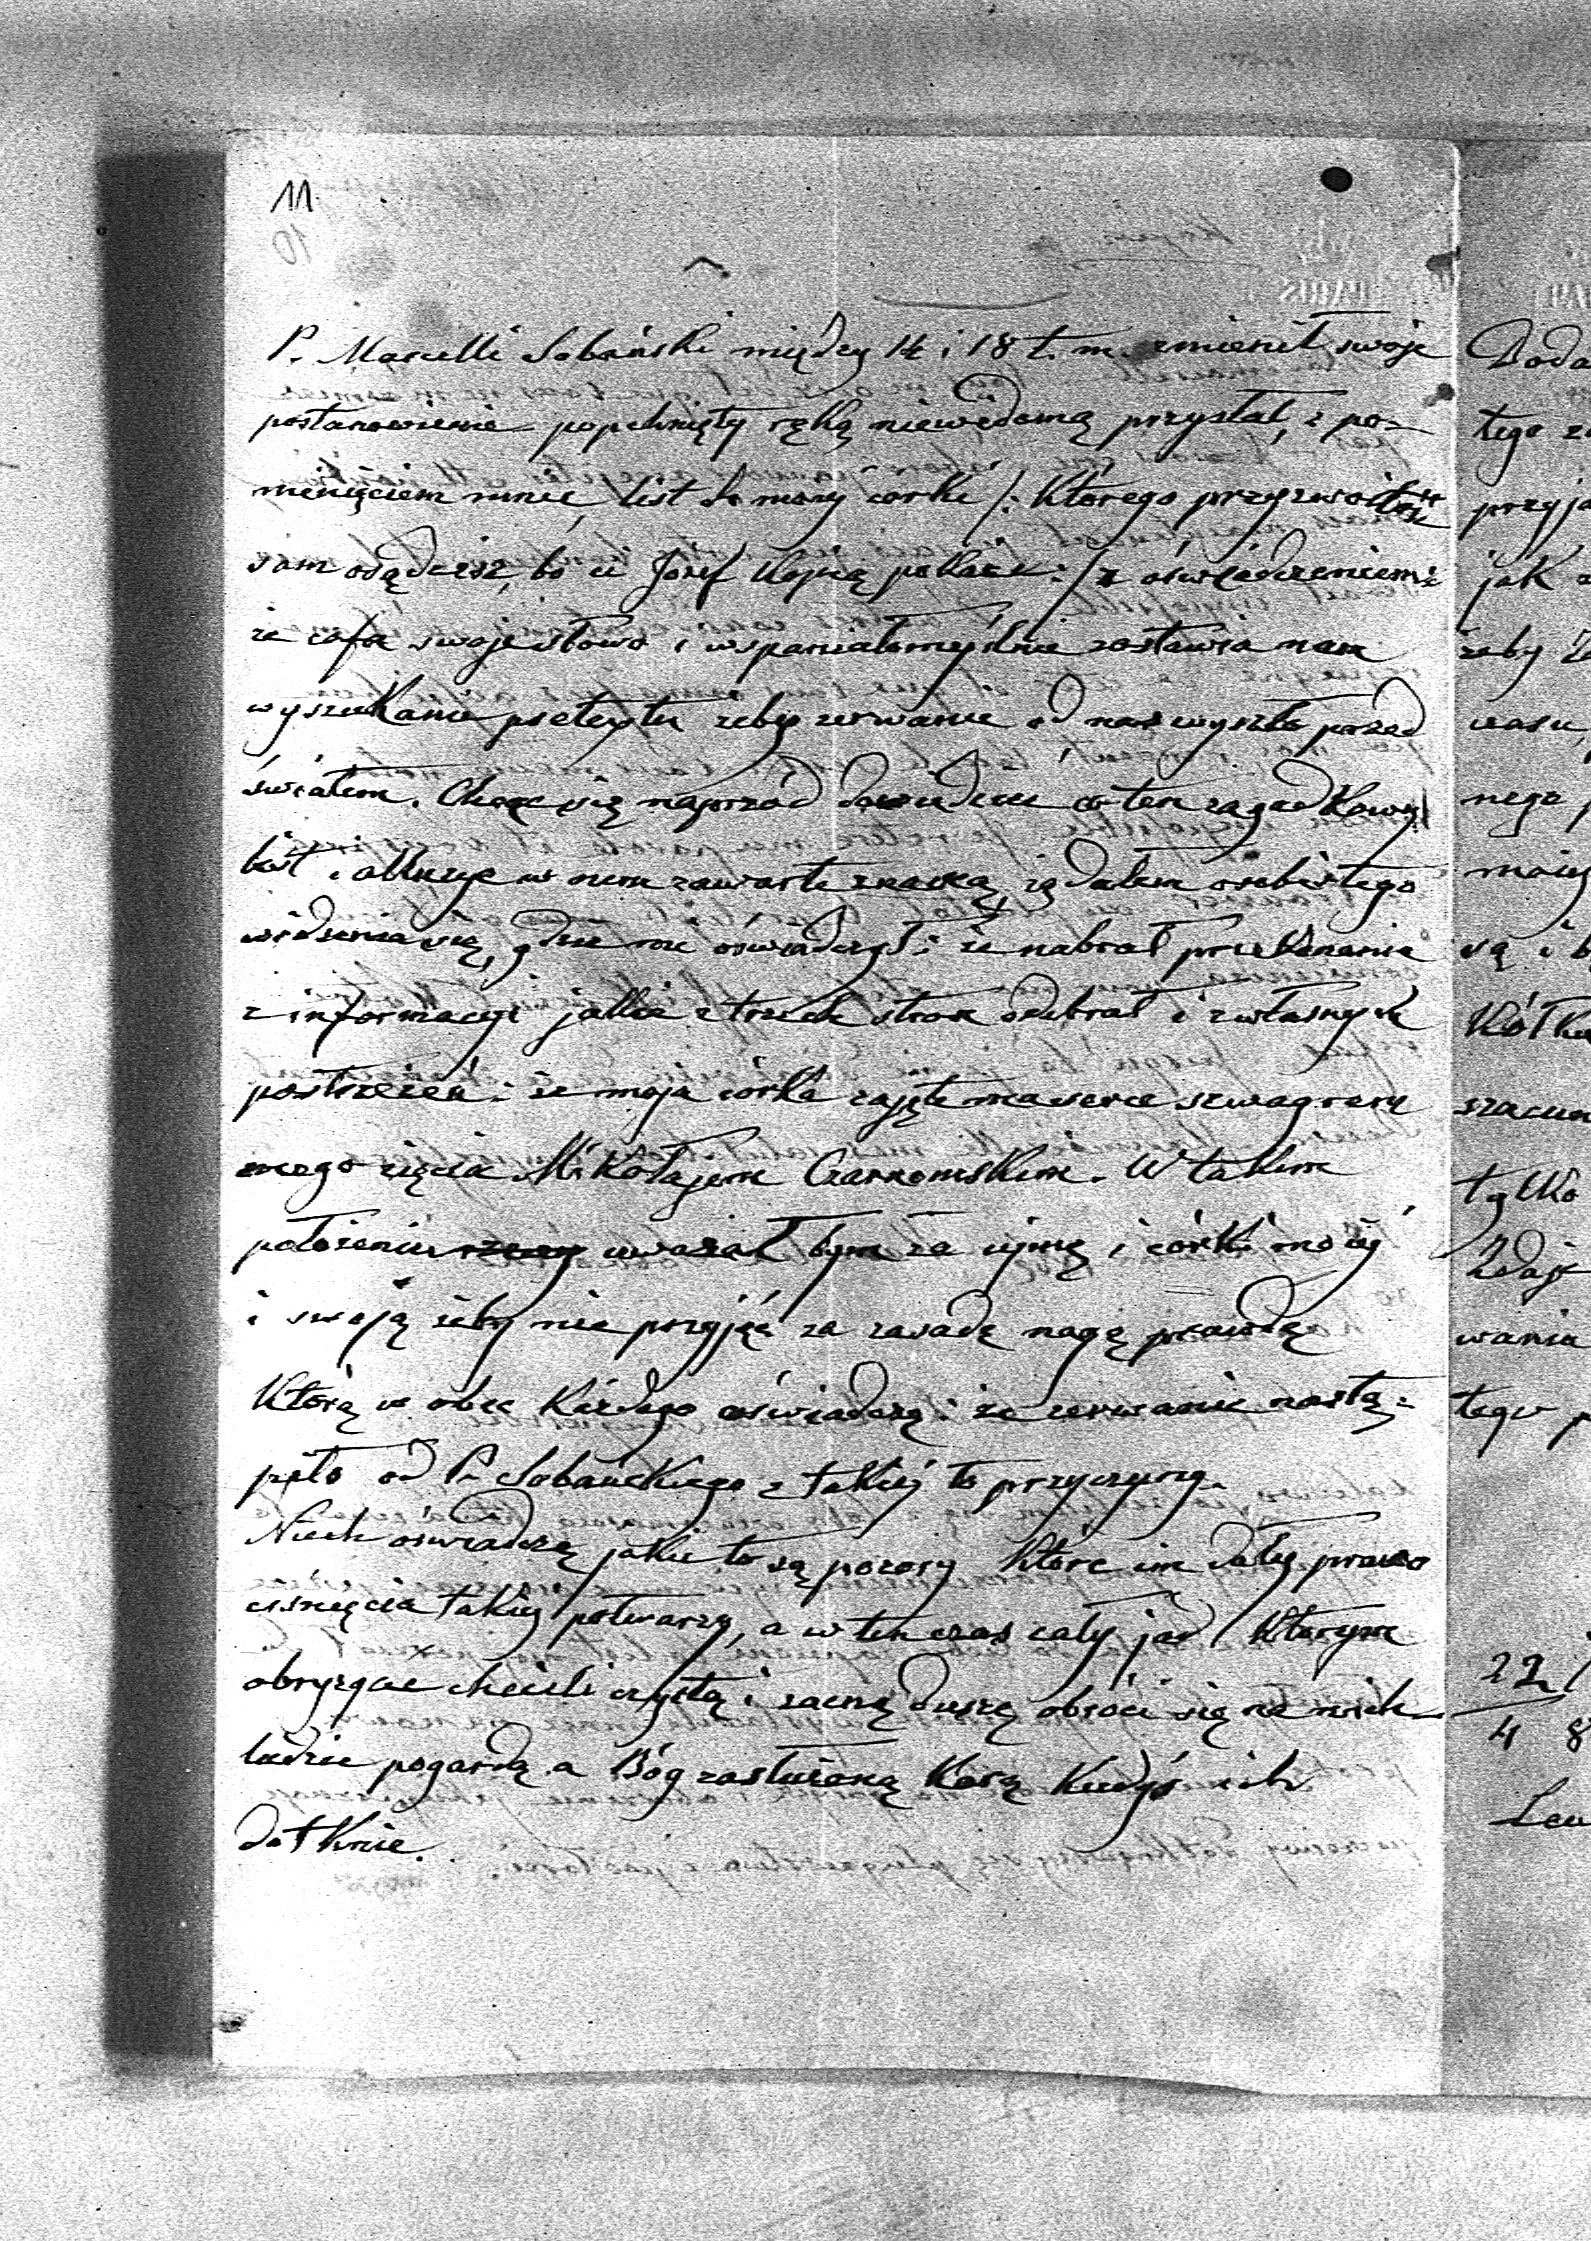 11
10
P. Marcelli Sobański między 14 i 18 t. m. zmienił swoje
postanowienie popchnięty ręką niewidomą przysłał, z po-
minięciem mnie, list do mojéj corki /: Którego przyzwoitość
sam osądzisz, bo ci Józef Kopią pokaże :/ z oświadczeniem:
że cofa swoje słowo i wspaniałomyślnie zostawia nam
wyszukanie pretextu żeby zerwanie od nas wyszło przed
światem. Chcąc się naprzód dowiedzieć co ten zagadkowy
list i allucye w nim zawarte znaczą, żądałem osobistego
widzenia się, gdzie mi oświadczył: że nabrał przekonanie
z informacyi jakie z trzech stron odebrał i z własnych
postrzeżeń: że moja córka zajęte ma serce szwagrem
mego zięcia Mikołajem Czarnomskim. W takim
położeniu uważał bym za ujmę i córki mojéj
i swoją żeby nie przyjąć za zasadę nagą prawdę
Którą w obec Każdego oświadczę: że zerwanie nastą-
piło od P. Sobańskiego z takiéj to przyczyny.
Niech oswiadczą jakie to są pozory Które im dały prawo
ciśnięcia takiéj potwarzy, a w ten czas cały jad Którym
obryzgać chcieli czystą i zacną duszę obróci się na nich
ludzie pogardą a Bóg zasłużoną Karą Kiedyś ich
dotknie.
Doda
tego
przyja
jak
żeby
nego
są i
szacun
tylko
wania
tego
22
4 8